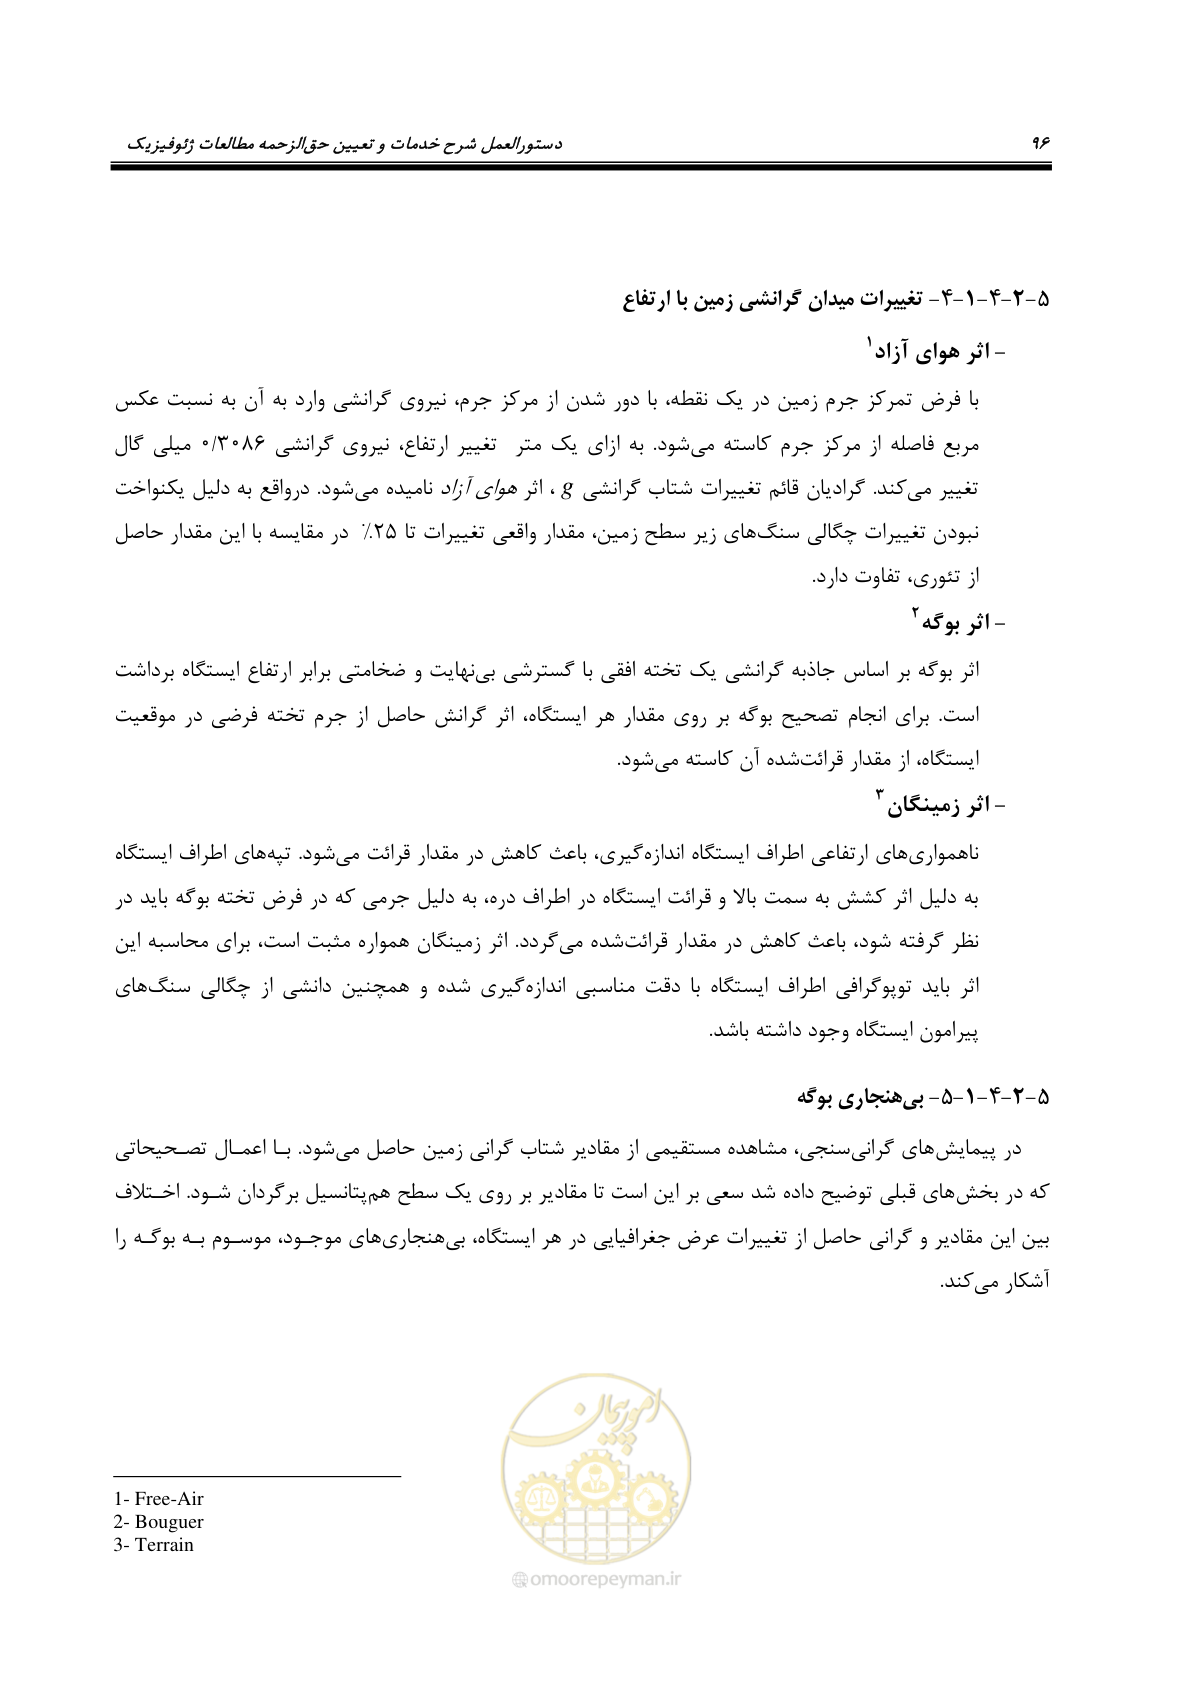 ۹۶
دستورالعمل شرح خدمات و تعیین حق‌الزحمه مطالعات ژئوفیزیک
۵-۲-۴-۱-۴- تغییرات میدان گرانشی زمین با ارتفاع
- اثر هوای آزاد۱
با فرض تمرکز جرم زمین در یک نقطه، با دور شدن از مرکز جرم، نیروی گرانشی وارد به آن به نسبت عکس
مربع فاصله از مرکز جرم کاسته می‌شود. به ازای یک متر تغییر ارتفاع، نیروی گرانشی ۰/۳۰۸۶ میلی گال
تغییر می‌کند. گرادیان قائم تغییرات شتاب گرانشی g ، اثر هوای آزاد نامیده می‌شود. درواقع به دلیل یکنواخت
نبودن تغییرات چگالی سنگ‌های زیر سطح زمین، مقدار واقعی تغییرات تا ۲۵٪ در مقایسه با این مقدار حاصل
از تئوری، تفاوت دارد.
- اثر بوگه۲
اثر بوگه بر اساس جاذبه گرانشی یک تخته افقی با گسترشی بی‌نهایت و ضخامتی برابر ارتفاع ایستگاه برداشت
است. برای انجام تصحیح بوگه بر روی مقدار هر ایستگاه، اثر گرانش حاصل از جرم تخته فرضی در موقعیت
ایستگاه، از مقدار قرائت‌شده آن کاسته می‌شود.
- اثر زمینگان۳
ناهمواری‌های ارتفاعی اطراف ایستگاه اندازه‌گیری، باعث کاهش در مقدار قرائت می‌شود. تپه‌های اطراف ایستگاه
به دلیل اثر کشش به سمت بالا و قرائت ایستگاه در اطراف دره، به دلیل جرمی که در فرض تخته بوگه باید در
نظر گرفته شود، باعث کاهش در مقدار قرائت‌شده می‌گردد. اثر زمینگان همواره مثبت است، برای محاسبه این
اثر باید توپوگرافی اطراف ایستگاه با دقت مناسبی اندازه‌گیری شده و همچنین دانشی از چگالی سنگ‌های
پیرامون ایستگاه وجود داشته باشد.
۵-۲-۴-۱-۵- بی‌هنجاری بوگه
در پیمایش‌های گرانی‌سنجی، مشاهده مستقیمی از مقادیر شتاب گرانی زمین حاصل می‌شود. بـا اعمـال تصـحیحاتی
که در بخش‌های قبلی توضیح داده شد سعی بر این است تا مقادیر بر روی یک سطح هم‌پتانسیل برگردان شـود. اخـتلاف
بین این مقادیر و گرانی حاصل از تغییرات عرض جغرافیایی در هر ایستگاه، بی‌هنجاری‌های موجـود، موسـوم بـه بوگـه را
آشکار می‌کند.
1- Free-Air
2- Bouguer
3- Terrain
امور پیمان
@omoorepeyman.ir